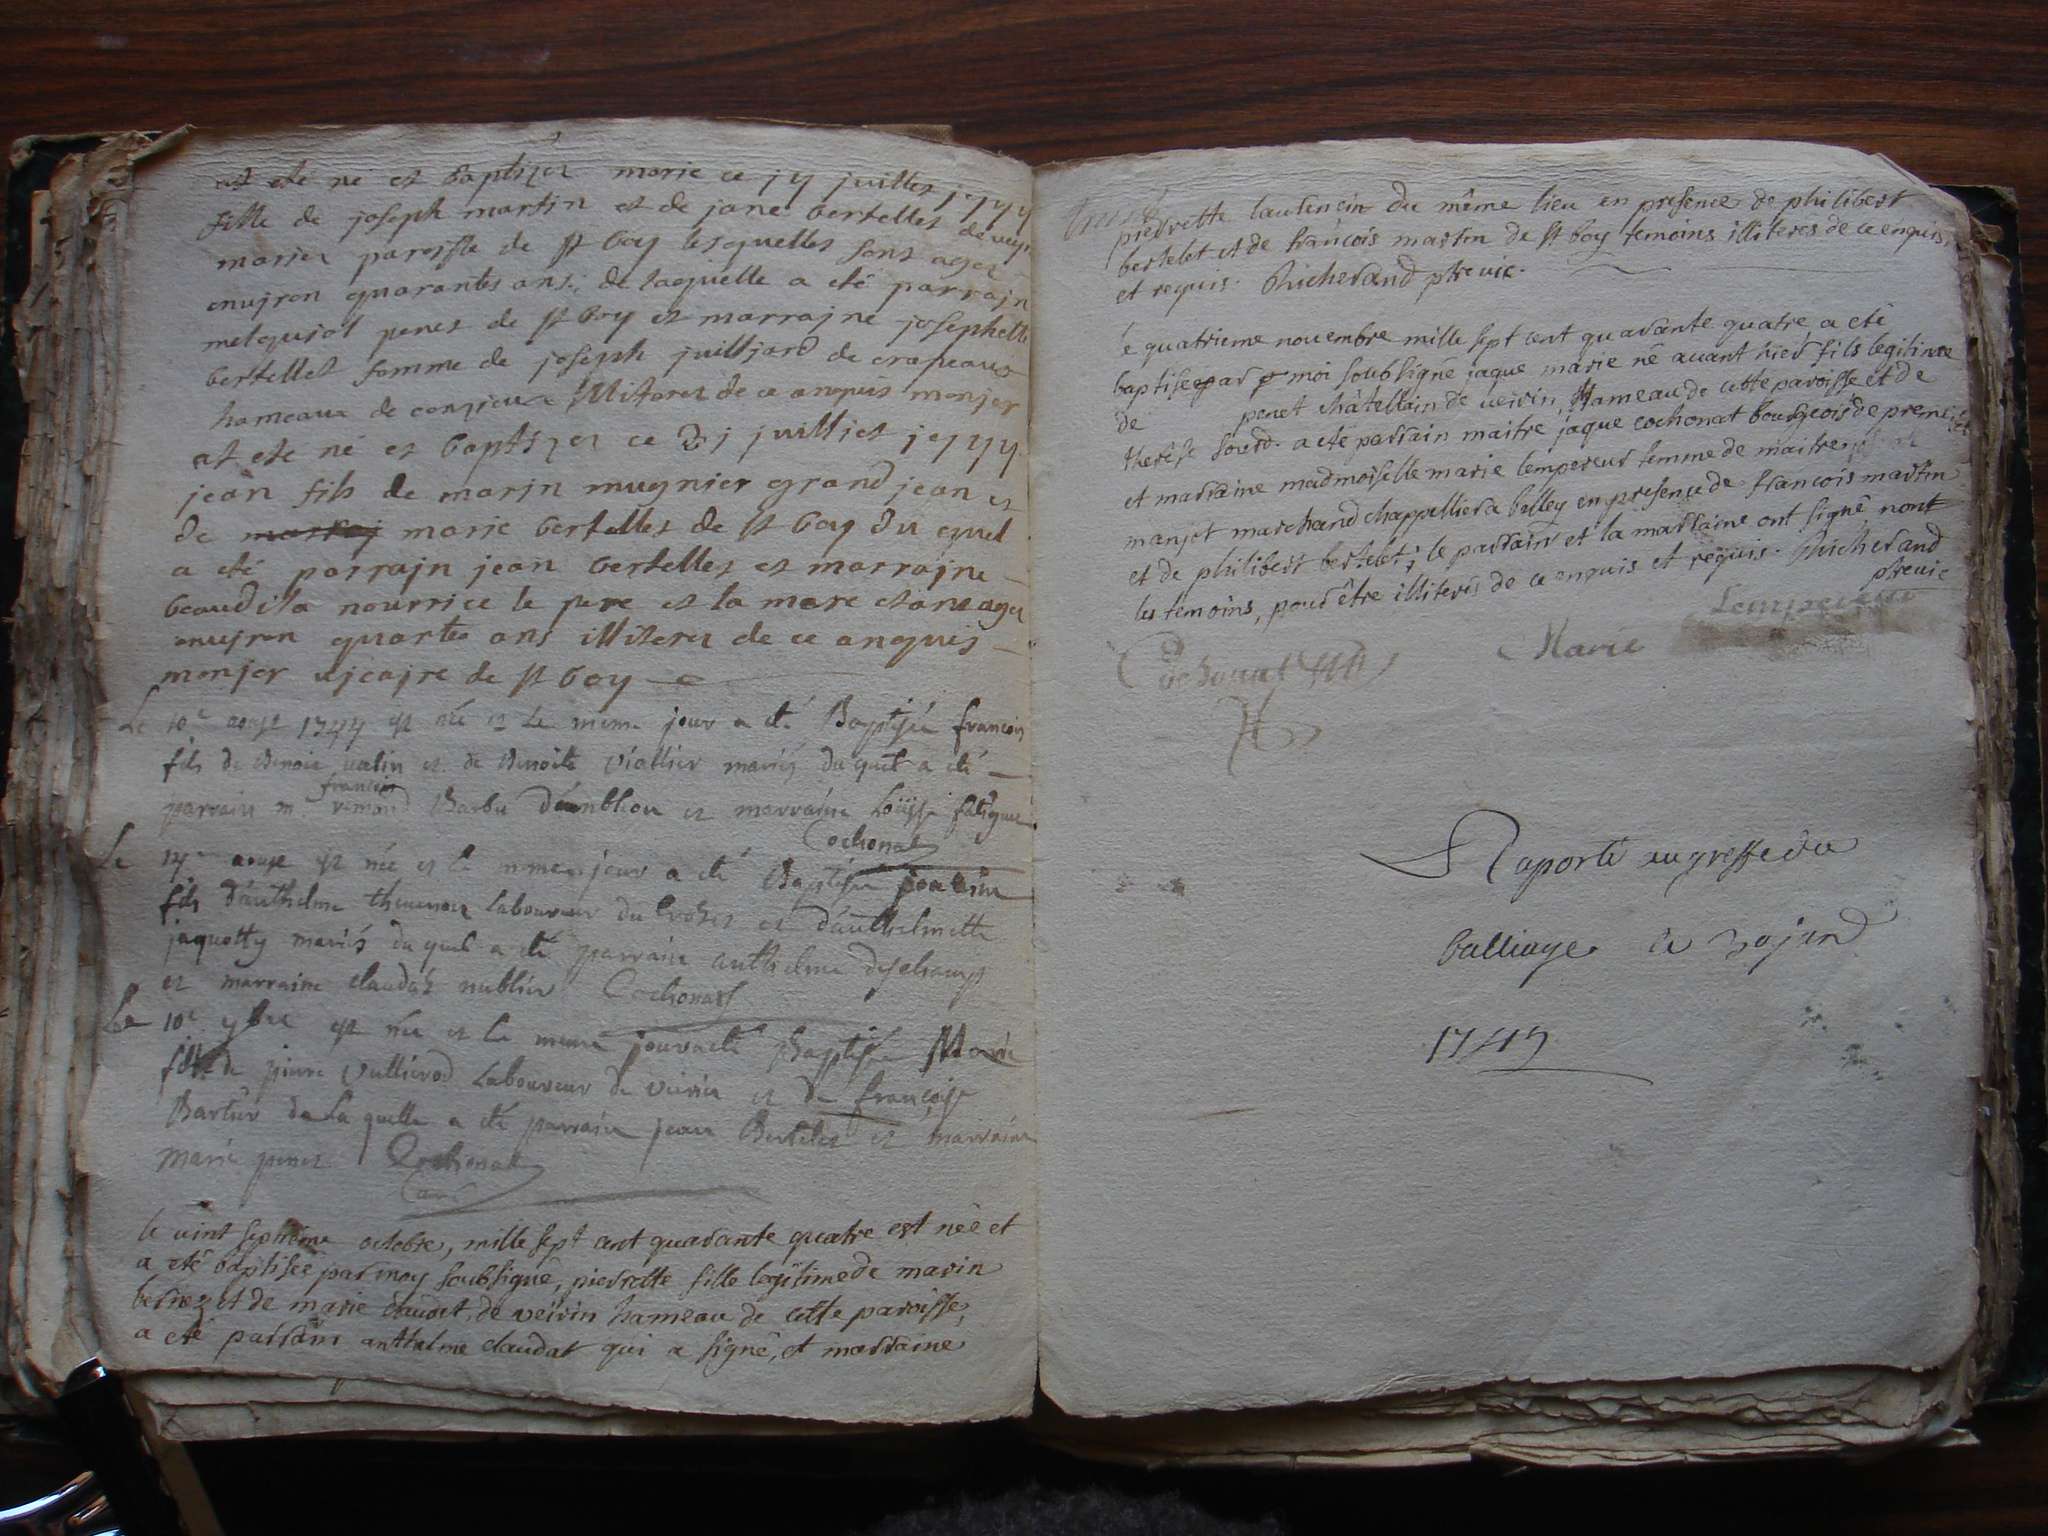 at eté né et baptizer marie ce j4 juillet j744
fille de joseph martin et de jane bertellet de
marier paroisse de st boy lesquelles sont ager
anujron quarantes ans, de laquelle a eté parrajn
penet de st boy et marrajne josephette
bertellet femme de joseph juilljard de crapeaux
hameaux de conzieux illiterer de ce anquis monjer
at eté né et baptizer ce 21 juilliet j744
jean fils de marjn mugnier grand jean et
de marie bertelles de st boy du quel
a eté parrajn jean bertelles et marrajne
beaudila nourrice le pere et la mere etant ager
anujron quarte ans illiterer de ce anquis
monjer vjcajre de st boy
Le 10e aoust 1744 est née et Le meme jour a eté Baptisé francois
fils de Benoit valin et de Benoite Viallier mariés du quel a eté
francois
parrain mr Barbu d'ambleon et marraine Loüise
Cochonat
Le 14e aoust est née et le meme jour a eté Baptisé
fils d'anthelme thevenon laboureur du et d'anthelmette
jaquetty mariés du quel a eté parrain anthelme deschamps
et marraine claudaz nublier Cochonat
Le 10e est née et le meme jour a eté Baptisée Marie
fille de pierre Vullierod Laboureur de veirin et de françoise
de La quelle a eté parrain jean Bertelet et marraine
marie penet Cochonat
curé
le vint septieme octobre, mille sept cent quarante quatre est née et
a eté baptisée par moy soubsigné, pierrette fille legitime de marin
bernez et de marie claudat, de veirin hameau de cette paroisse,
a eté parrain anthelme claudat qui a signé, et marraine
pierrette laurencin du même lieu en presence de philibert
bertelet et de francois martin de st boy temoins illiteres de ce enquis,
et requis. Richerand ptre vic.
le quatrieme novembre mille sept cent quarante quatre a eté
baptisé par moi soubsigné jaque marie né avant hier fils legitime
de penet châtellain de veirin, hameau de cette paroisse et de
therése sourd. a eté parrain maitre jaque cochonat bourgeois de
et marraine madmoiselle marie lempereur femme de maitre
manjot marchand chappellier a belley en presence de francois martin
et de philibert bertelet; le parrain et la marraine ont signé nont
les temoins, pour être illiterés de ce enquis et requis. Richerand
ptre vic
Lempereur
Marie
Cochonat
Raporté au greffe du
balliage ce 30 janv
1745